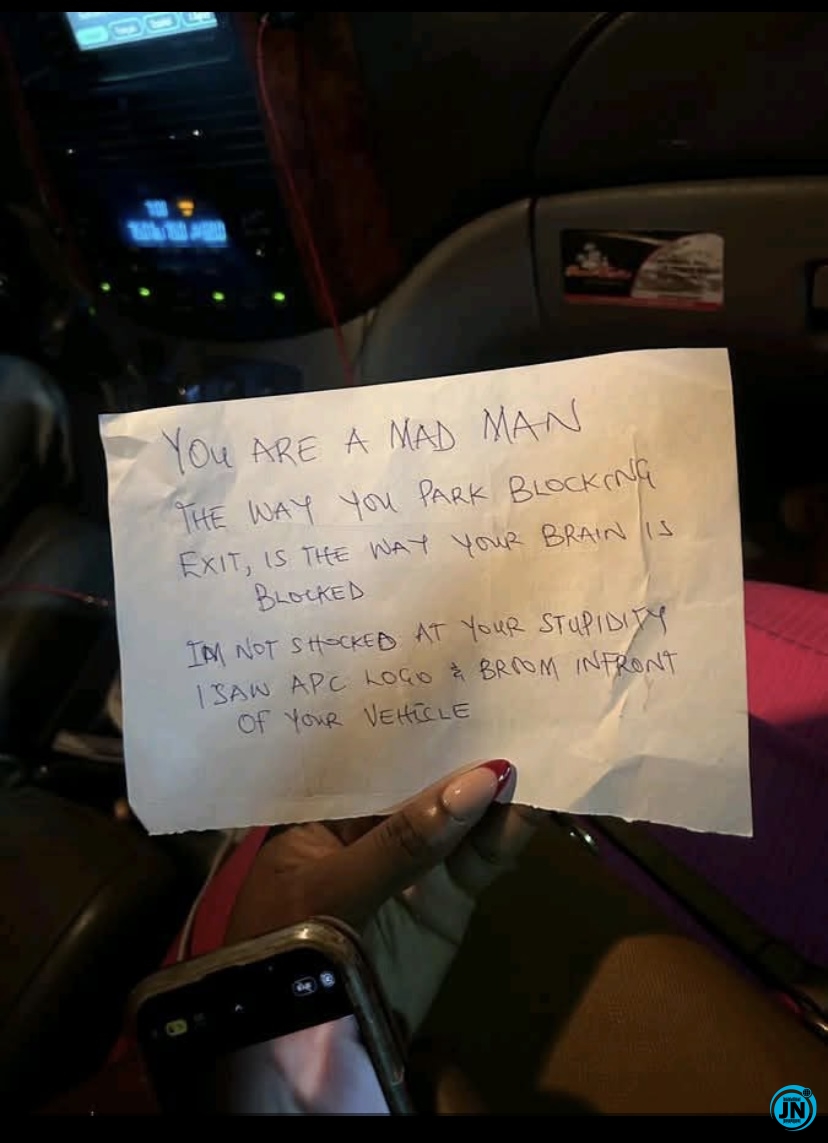 YOU ARE A MAD MAN
THE WAY YOU PARK BLOCKING
EXIT, IS THE WAY YOUR BRAIN IS
BLOCKED
IM NOT SHOCKED AT YOUR STUPIDITY
I SAW APC LOGO & BROOM INFRONT
OF YOUR VEHICLE
JN